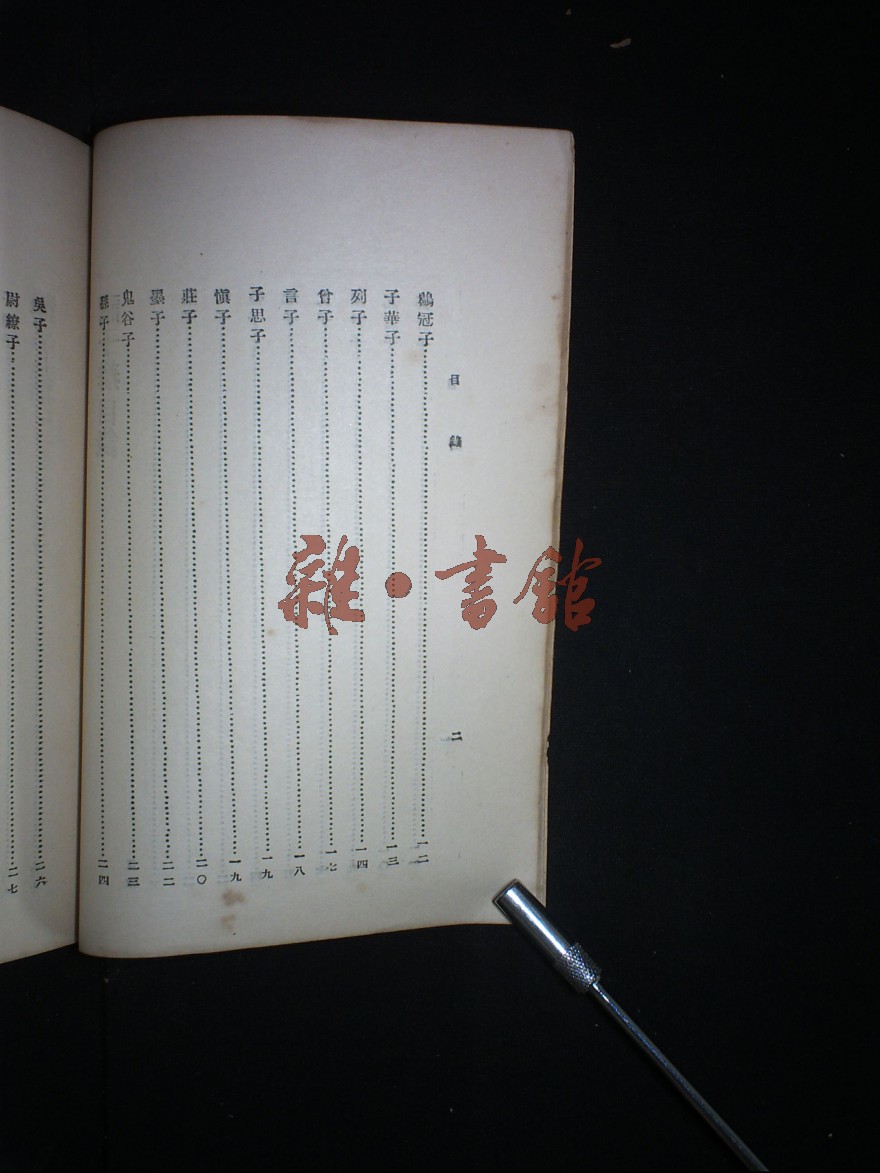 目錄 二
鶡冠子……一二
子華子……一三
列子……一四
曾子……一七
言子……一八
子思子……一九
慎子……一九
莊子……二〇
墨子……二二
鬼谷子……二三
孫子……二四
吳子……二六
尉繚子……二七
雜·書館